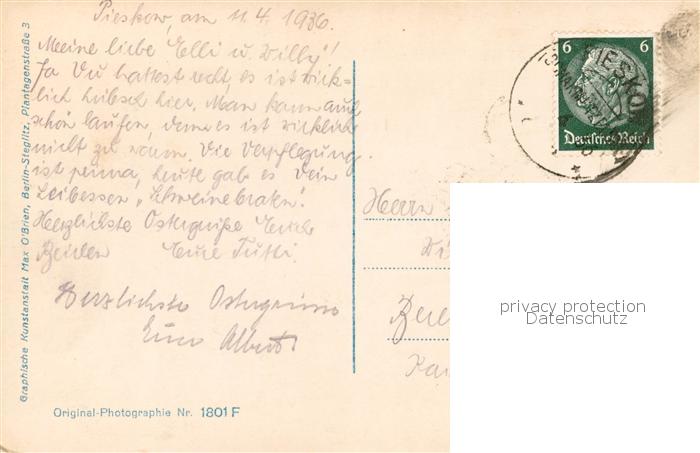 Pieskow, am 11.4.1936.
Meine liebe Elli u. Willy!
Ja Du hattest recht, es ist wirk-
lich hübsch hier. Man kann auch
schön laufen, denn es ist wirklich
nicht zu warm. Die Verpflegung
ist prima, heute gab es Dein
Leibessen „Schweinebraten".
Herzlichste Ostergrüße Euch
Beiden Eure Tutti.
Herzlichste Ostergrüsse
Euer Albert
Original-Photographie Nr. 1801 F
Graphische Kunstanstalt Max O'Brien, Berlin-Steglitz, Plantagenstraße 3
6 6
Deutsches Reich
PIESKOW
Herrn
privacy protection
Datenschutz